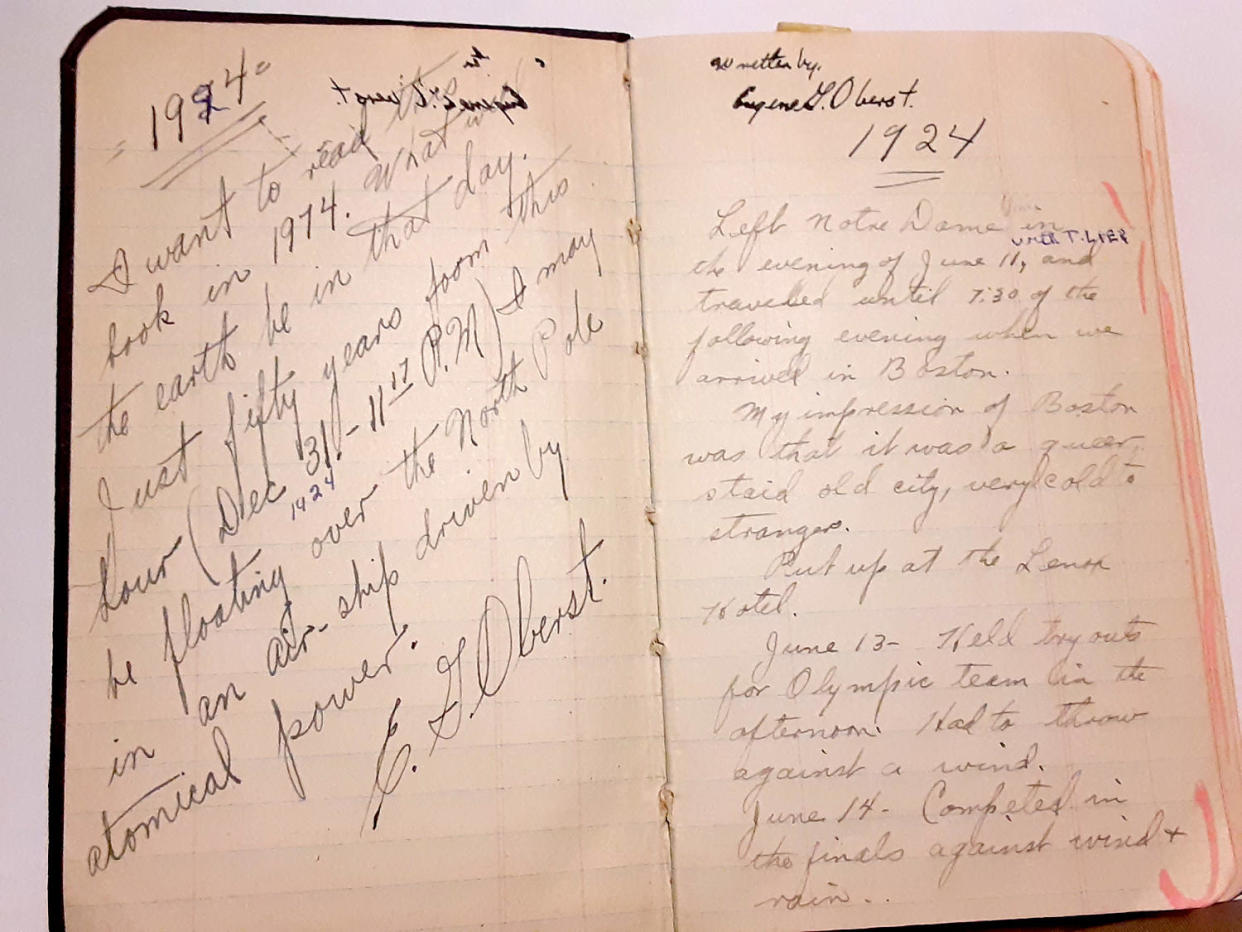 1924
I want to read this
book in 1974. What will
the earth be in that day.
Just fifty years from this
hour (Dec 31 - 11 17 P.M) I may
1924
be floating over the North Pole
in an air-ship driven by
atomical power.
E. G. Oberst.
Written by.
Eugene G. Oberst.
1924
Left Notre Dame in
with T. LIEB
the evening of June 11, and
travelled until 7:30 of the
following evening when we
arrived in Boston.
My impression of Boston
was that it was a queer,
staid old city, very cold to
strangers.
Put up at the Lenox
Hotel.
June 13- Held try outs
for Olympic team in the
afternoon. Had to throw
against a wind.
June 14- Competed in
the finals against wind +
rain..